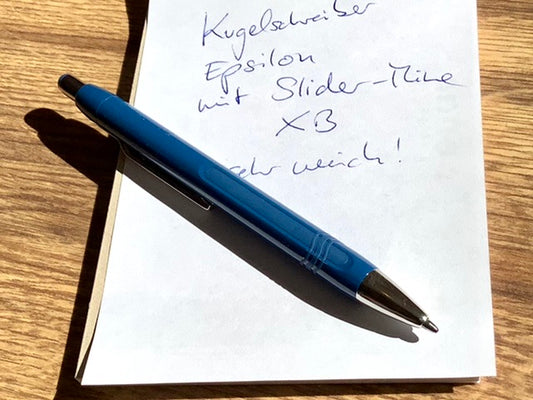 Kugelschreiber
Epsilon
mit Slider-Mine
XB
sehr weich!